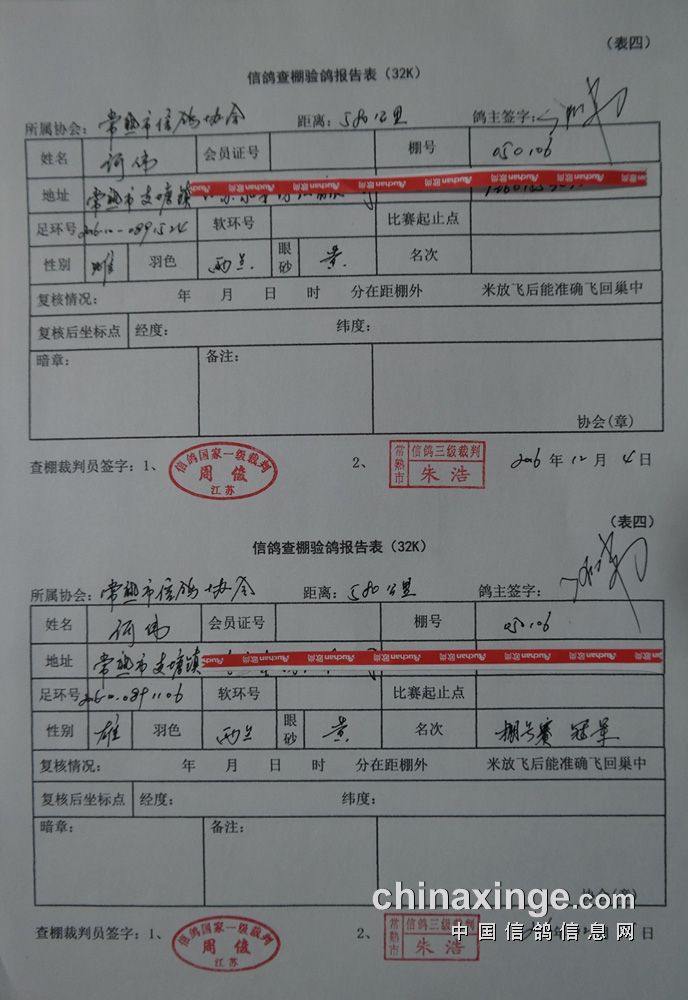 （表四）
信鸽查棚验鸽报告表（32K）
所属协会：常熟市信鸽协会 距离：580公里 鸽主签字：
姓名 何伟 会员证号 棚号 050106
地址 常熟市支塘镇 Auchan 欧尚 Auchan 欧尚 Auchan 欧尚 Auchan 欧尚 Auchan
足环号 软环号 比赛起止点
性别 雄 羽色 雨点 眼砂 黄 名次
复核情况： 年 月 日 时 分在距棚外 米放飞后能准确飞回巢中
复核后坐标点 经度： 纬度：
暗章： 备注：
协会(章)
查棚裁判员签字：1、 信鸽国家一级裁判 周俊 江苏 2、 常熟市 信鸽三级裁判 朱浩 2016 年 12 月 4 日
（表四）
信鸽查棚验鸽报告表（32K）
所属协会：常熟市信鸽协会 距离：580公里 鸽主签字：
姓名 何伟 会员证号 棚号 050106
地址 常熟市支塘镇 Auchan 欧尚 Auchan 欧尚 Auchan 欧尚 Auchan 欧尚 Auchan
足环号 软环号 比赛起止点
性别 雄 羽色 雨点 眼砂 黄 名次 棚号赛 冠军
复核情况： 年 月 日 时 分在距棚外 米放飞后能准确飞回巢中
复核后坐标点 经度： 纬度：
暗章： 备注：
协会(章)
chinaxinge.com
查棚裁判员签字：1、 信鸽国家一级裁判 周俊 江苏 2、 常熟市 信鸽三级裁判 朱浩 年 日
中国信鸽信息网